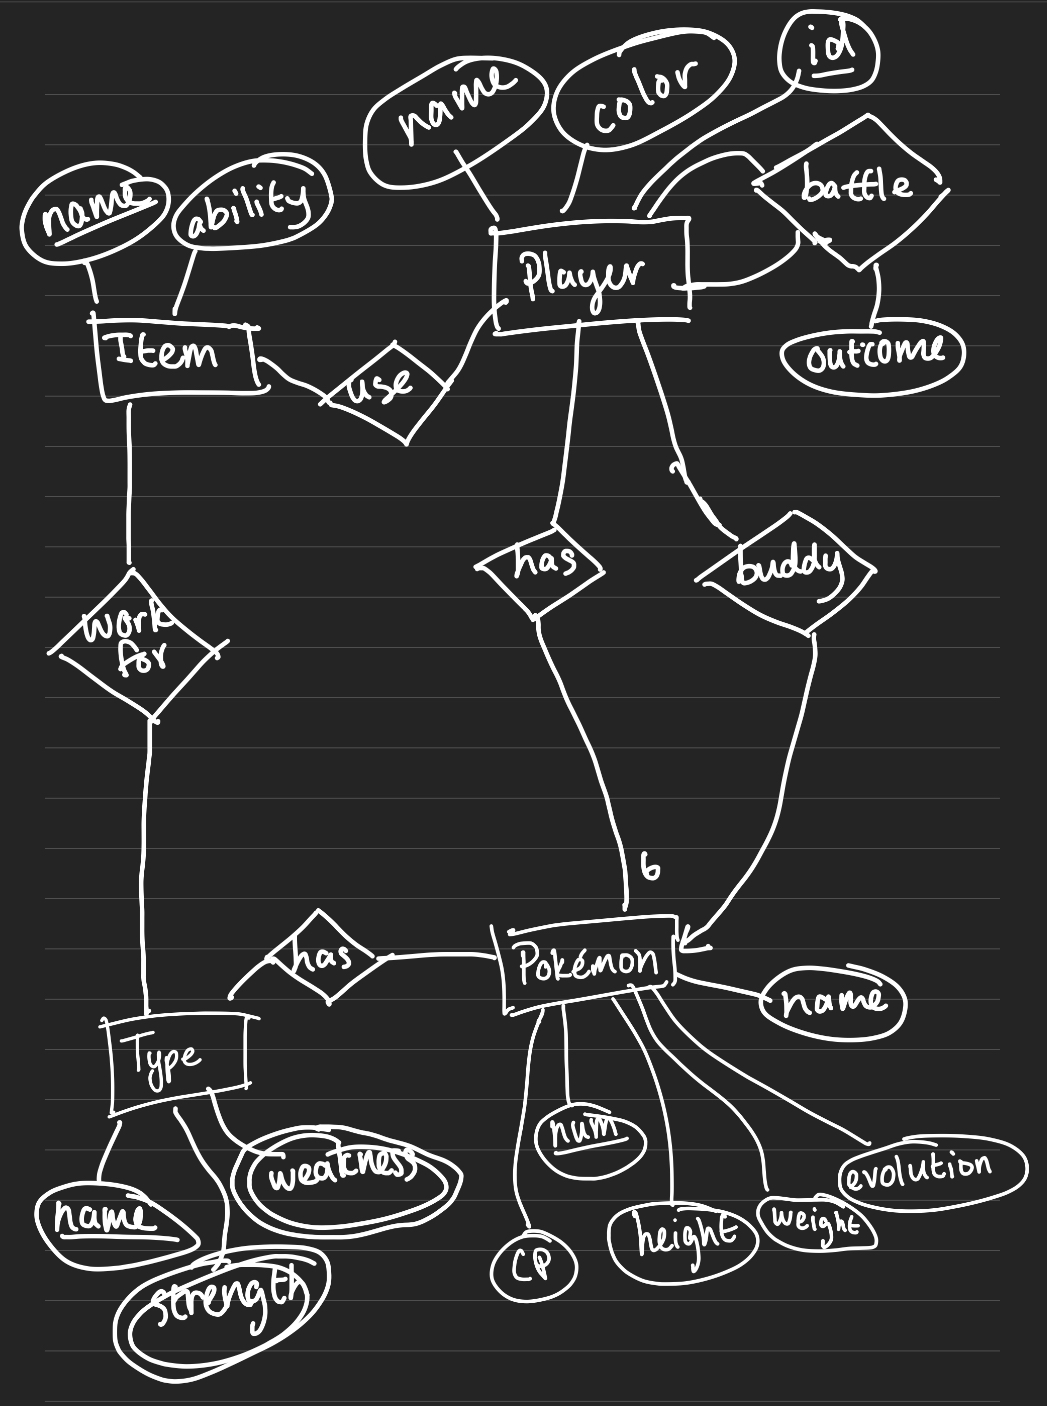 id
name
color
battle
name
ability
Player
Item
use
outcome
has
buddy
work
for
6
has
Pokémon
name
Type
num
weakness
evolution
name
weight
height
CP
strength